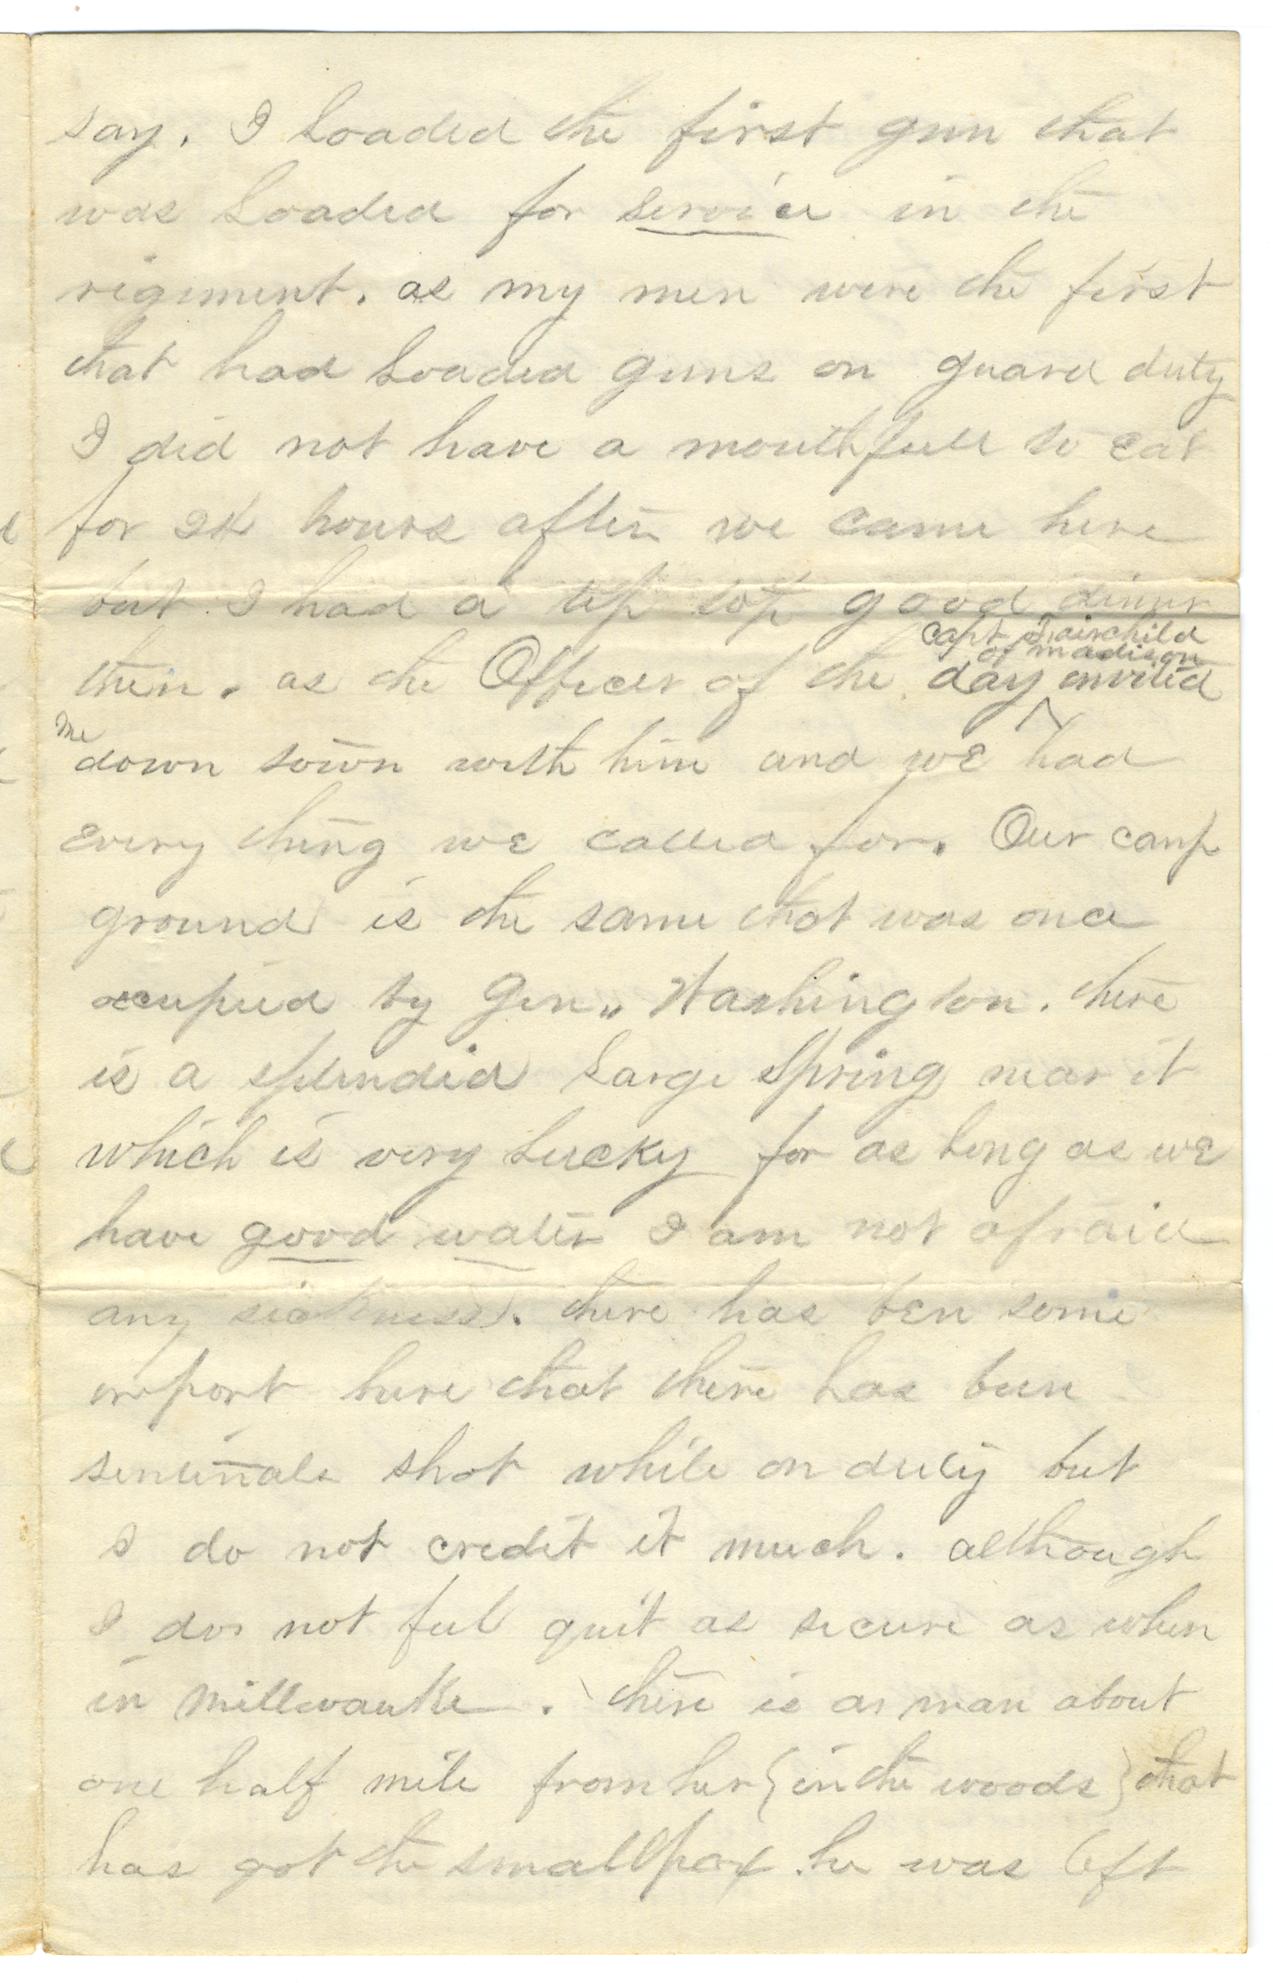 say. I loaded the first gun that
was loaded for service in the
regiment. as my men were the first
that had loaded guns on guard duty
I did not have a mouthfull to eat
for 24 hours after we came here
but I had a tip top good dinner
Capt Fairchild
of madison
then. as the Officer of the day invited
me
down town with him and we had
every thing we called for. Our camp
ground is the same that was once
occupied by Gen,, Washington. there
is a splendid large Spring near it
which is very lucky for as long as we
have good water I am not afraid
any sickness. there has ben some
report here that there has been
sentinals shot while on duty but
I do not credit it much. although
I do not feel quit as secure as when
in Millwaukee. there is a man about
one half mile from her {in the woods} that
has got the smallpox he was left